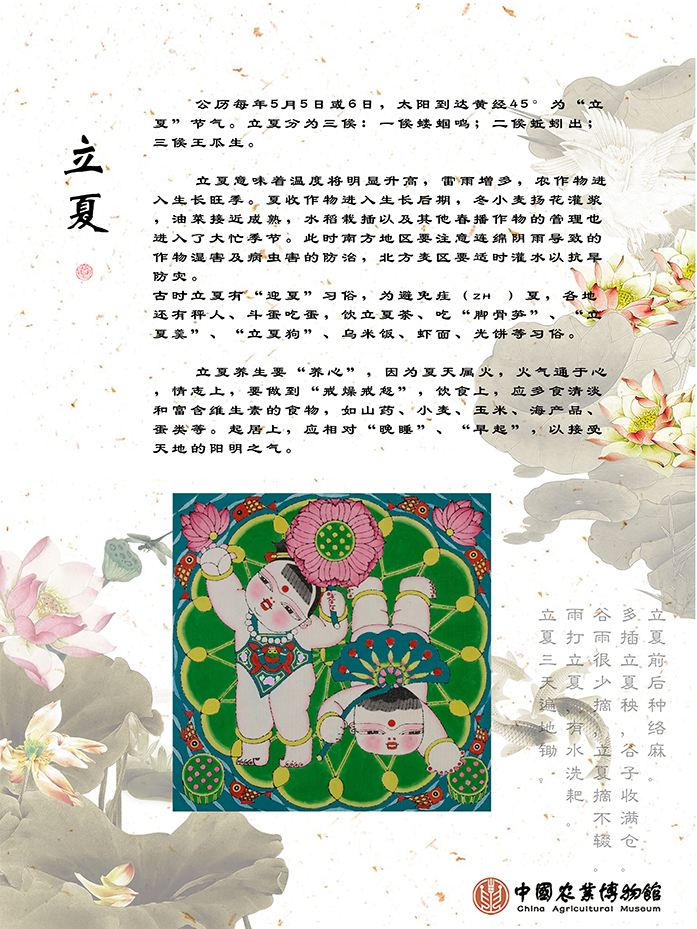 立夏
公历每年5月5日或6日，太阳到达黄经45°为“立
夏”节气。立夏分为三候：一候蝼蝈鸣；二候蚯蚓出；
三候王瓜生。
立夏意味着温度将明显升高，雷雨增多，农作物进
入生长旺季。夏收作物进入生长后期，冬小麦扬花灌浆
，油菜接近成熟，水稻栽插以及其他春播作物的管理也
进入了大忙季节。此时南方地区要注意连绵阴雨导致的
作物湿害及病虫害的防治，北方麦区要适时灌水以抗旱
防灾。
古时立夏有“迎夏”习俗，为避免疰（ZH ）夏，各地
还有秤人、斗蛋吃蛋，饮立夏茶、吃“脚骨笋”、“立
夏羹”、“立夏狗”、乌米饭、虾面、光饼等习俗。
立夏养生要“养心”，因为夏天属火，火气通于心
，情志上，要做到“戒燥戒怒”，饮食上，应多食清淡
和富含维生素的食物，如山药、小麦、玉米、海产品、
蛋类等。起居上，应相对“晚睡”、“早起”，以接受
天地的阳明之气。
立夏前后种络麻。
多插立夏秧，谷子收满仓。
谷雨很少摘，立夏摘不辍。
雨打立夏，有水洗耙。
立夏三天遍地锄
中國农業博物館
China Agricultural Museum